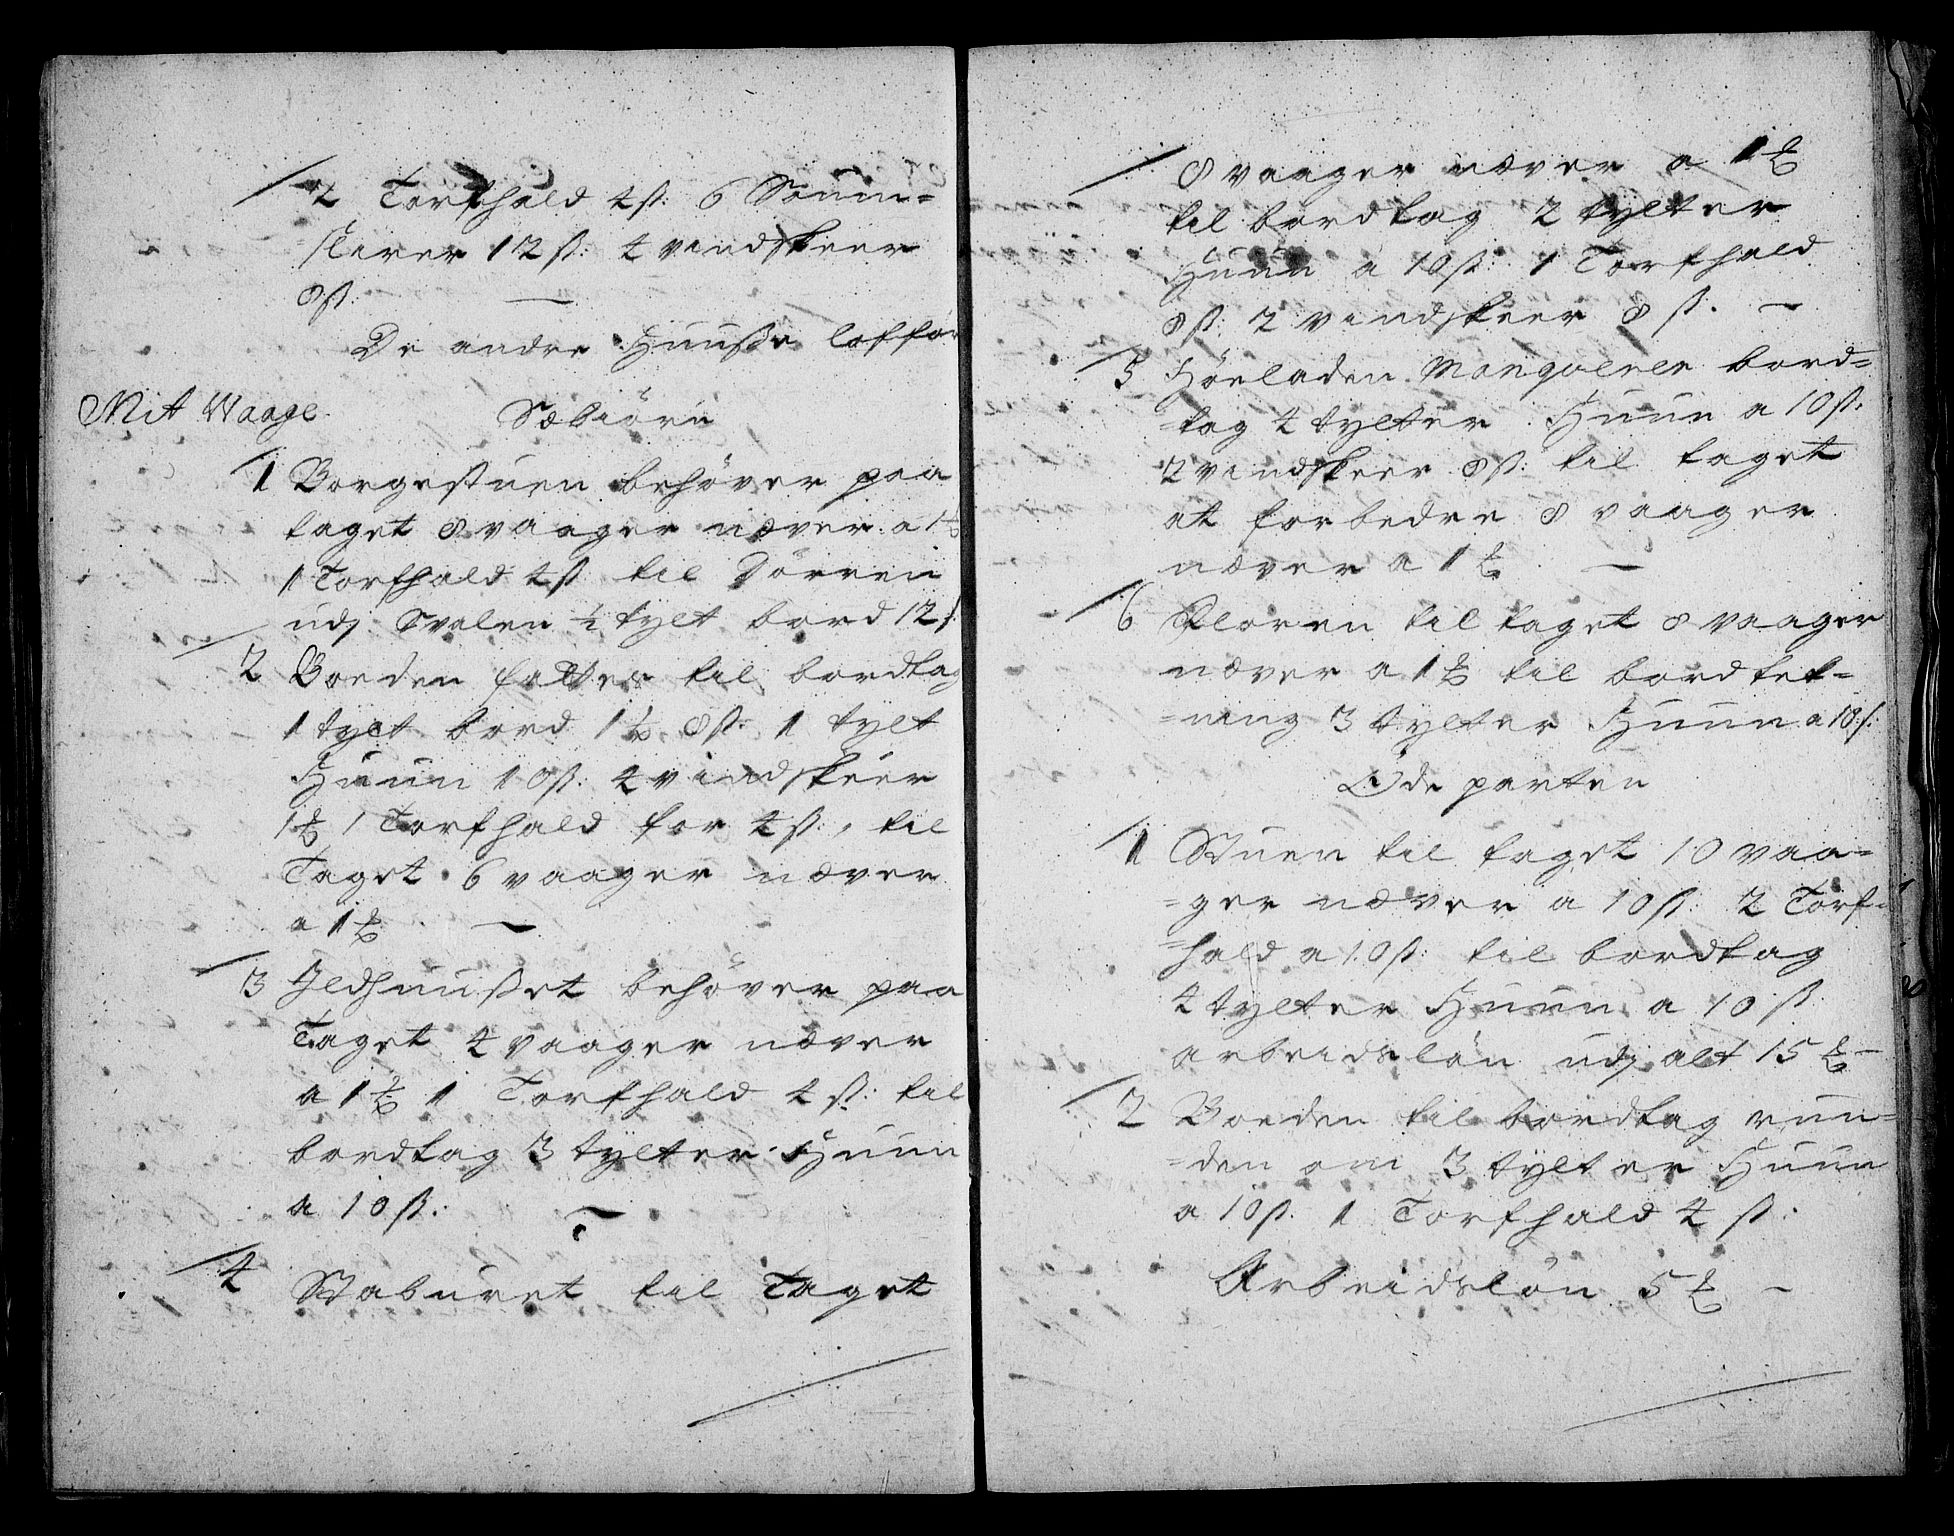 2 Torfhald 4 ß: 6 Souun=
slirer 12 ß: 4 vindskeer
8 ß:
De andre Huuße laffør
Mit Waage.
Sæbiörn
1 Borgestuen behøver paa
taget 8 vaager næver a 1 ℔
1 Torfhald 4 ß til Dörren
udj Svalen ½ tylt bord 12 ß
2 Boeden fatter til bordtag
1 tylt bord 1 ℔ 8 ß: 1 tylt
Huun 10 ß: 4 vindskeer
1 ℔ 1 Torfhald for 4 ß:, til
Taget 6 vaager næver
a 1 ℔
3 Jldhuußet behøver paa
Taget 4 vaager næver
a 1 ℔ 1 Torfhald 4 ß: til
bordtag 3 tylter Huun
a 10 ß:
4 Staburet til Taget
8 vaager næver a 1 ℔
til bordtag 2 tylter
Huun a 10 ß: 1 Torfhald
8 ß: 2 vindskeer 8 ß:
5 Höeladen Manqverer bord=
=tag 4 tylter Huun a 10 ß:
2 vindskeer 8 ß: til taget
at forbedre 8 vaager
næver a 1 ℔
6 Floren til taget 8 vaager
næver a 1 ℔ til bordtet=
=ning 3 tylter Huun a 10 ß:
Öde parten
1 Stuen til taget 10 vaa=
=ger næver a 10 ß: 2 Torf=
=hald a 10 ß: til bordtag
4 tylter Huun a 10 ß
arbeidslön udj alt 15 ℔
2 Boeden til bordtag run=
=den om 3 tylter Huun
a 10 ß. 1 Torfhald 4 ß:
Arbeidslön 5 ℔